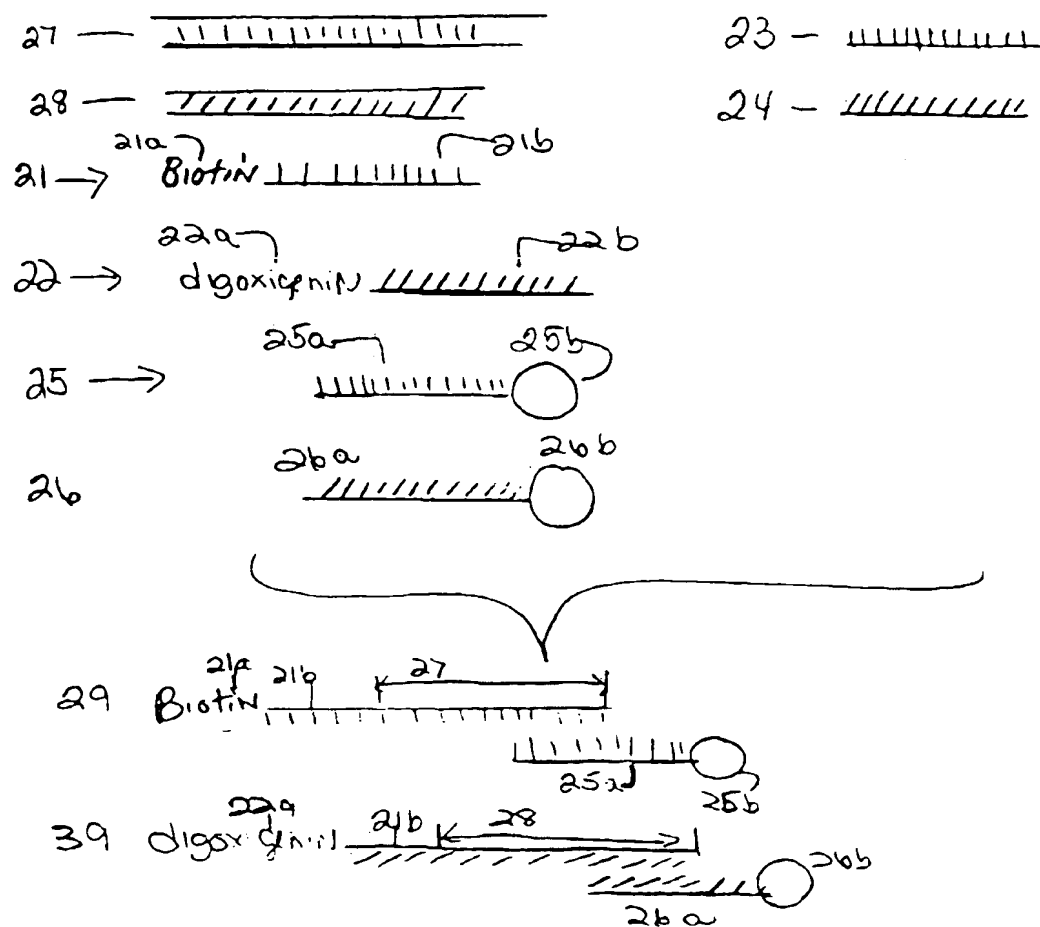 27 — 23 –
28 — 24 –
21a 21b
21 → Biotin
22a 22b
22 → digoxigenin
25a 25b
25 →
26a 26b
26
21a 21b 27
29 Biotin
25a 25b
22a 21b 28
39 digoxigenin
26b
26a